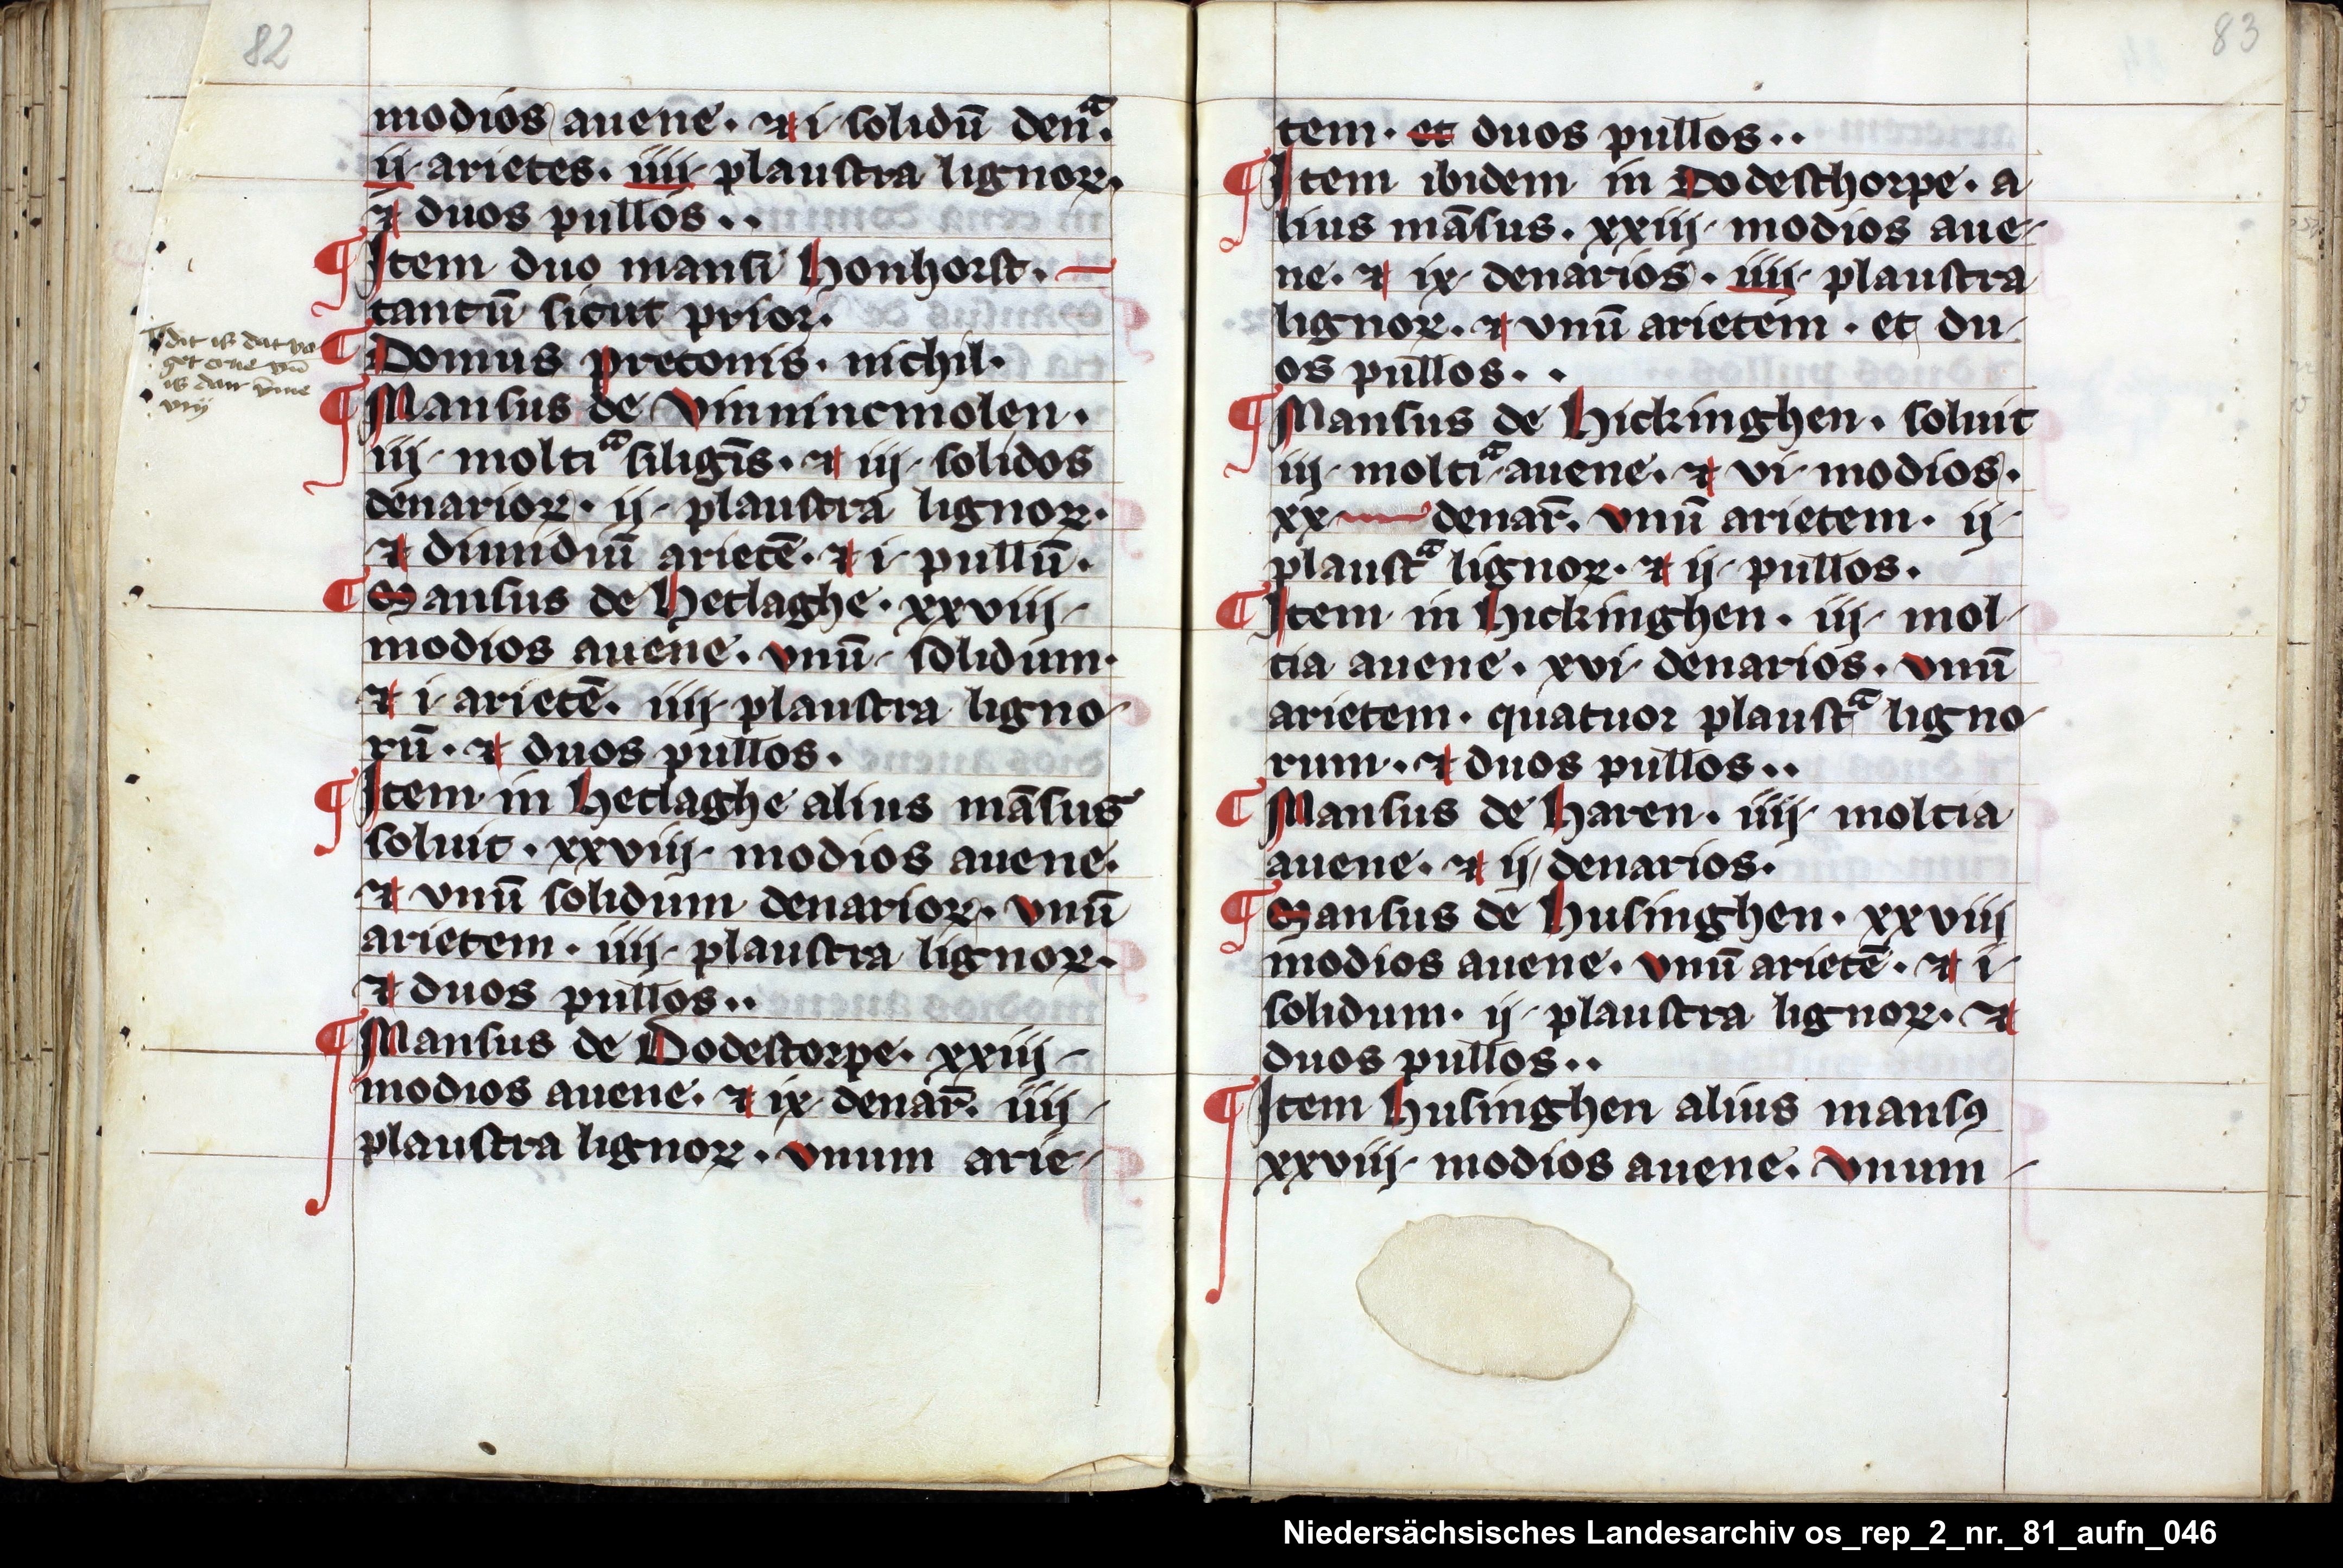 82
modios auene. ⁊ i solidū denᵃ.
ij arietes. iiij plaustra lignoꝝ.
⁊ duos pullos..
¶ Item duo mansi honhorst. —
tantū sicut prior.
¶ Domus preconis. nichil.
¶ Mansus de vinnincmolen.
iij moltiᵃ siligīs. ⁊ iij solidos
denarioꝝ. ij plaustra lignoꝝ.
⁊ dimidiū arietē. ⁊ i pullū.
¶ Mansus de hetlaghe. xxviij
modios auene. vnū solidum.
⁊ i arietē. iiij plaustra ligno
rū. ⁊ duos pullos.
¶ Item in hetlaghe alius māsus
soluit. xxviij modios auene.
⁊ vnū solidum denarioꝝ. vnū
arietem. iiij plaustra lignoꝝ.
⁊ duos pullos..
¶ Mansus de Dodestorpe. xxiij
modios auene. ⁊ ix denar̄. iiij
plaustra lignoꝝ. vnum arie
dit is dat va
get erue vn̄
is dat
viij
83
tem. et duos pullos..
¶ Item ibidem in Dodesthorpe. a
lius māsus. xxiij modios aue
ne. ⁊ ix denarios. iiij plaustra
lignoꝝ. ⁊ vnū arietem. et du
os pullos..
¶ Mansus de hickinghen. soluit
iij moltiᵃ auene. ⁊ vi modios.
xx denar̄. vnū arietem. ij
plaustᵃ lignoꝝ. ⁊ ij pullos.
¶ Item in hickinghen. iij mol
tia auene. xvi denarios. vnū
arietem. quatuor plaustᵃ ligno
rum. ⁊ duos pullos..
¶ Mansus de haren. iiij moltia
auene. ⁊ ij denarios.
¶ Mansus de husinghen. xxviij
modios auene. vnū arietē. ⁊ i
solidum. ij plaustra lignoꝝ. ⁊
duos pullos..
¶ Item husinghen alius mansꝯ
xxviij modios auene. vnum
Niedersächsisches Landesarchiv os_rep_2_nr._81_aufn_046